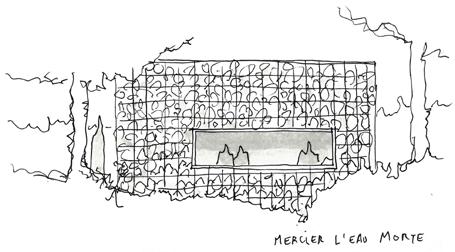 MERCIER L'EAU MORTE